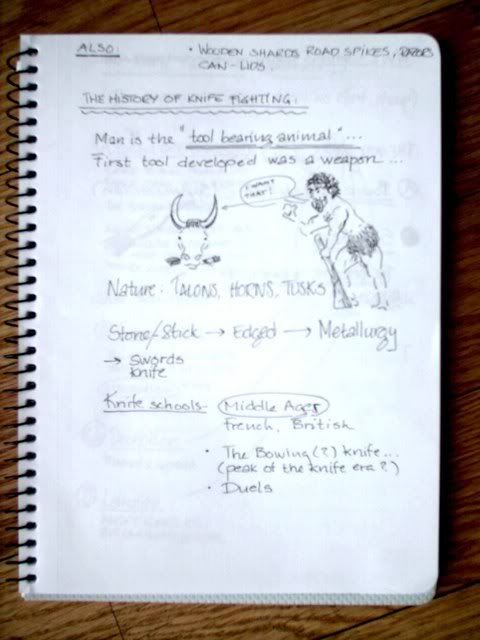 ALSO:
• WOODEN SHARDS ROAD SPIKES, RAZORS
CAN-LIDS.
THE HISTORY OF KNIFE FIGHTING:
Man is the "tool bearing animal"...
First tool developed was a weapon...
I WANT
THAT!
Nature: TALONS, HORNS, TUSKS
Stone/Stick → Edged → Metallurgy
→ Swords
knife
Knife schools- Middle Ages
French, British
• The Bowing(?) knife...
(peak of the knife era?)
• Duels